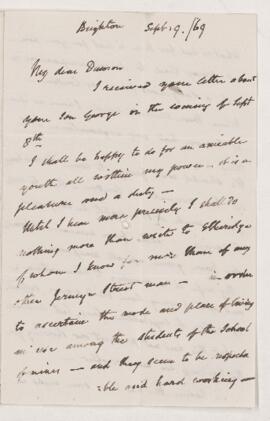 Brighton Sept. 9. /69
My dear Dawson
I received your letter about
your Son George on the evening of Sept
8th
I shall be happy to do for an amiable
youth all within my power - it is a
pleasure and a duty -
Until I hear more precisely I shall do
nothing more than write to Etheridge
of whom I know far more than of any
other Jermyn Street man - in order
to ascertain the mode and place of living
in use among the students of the School
of mines - and they seem to be respecta
=ble and hard working -